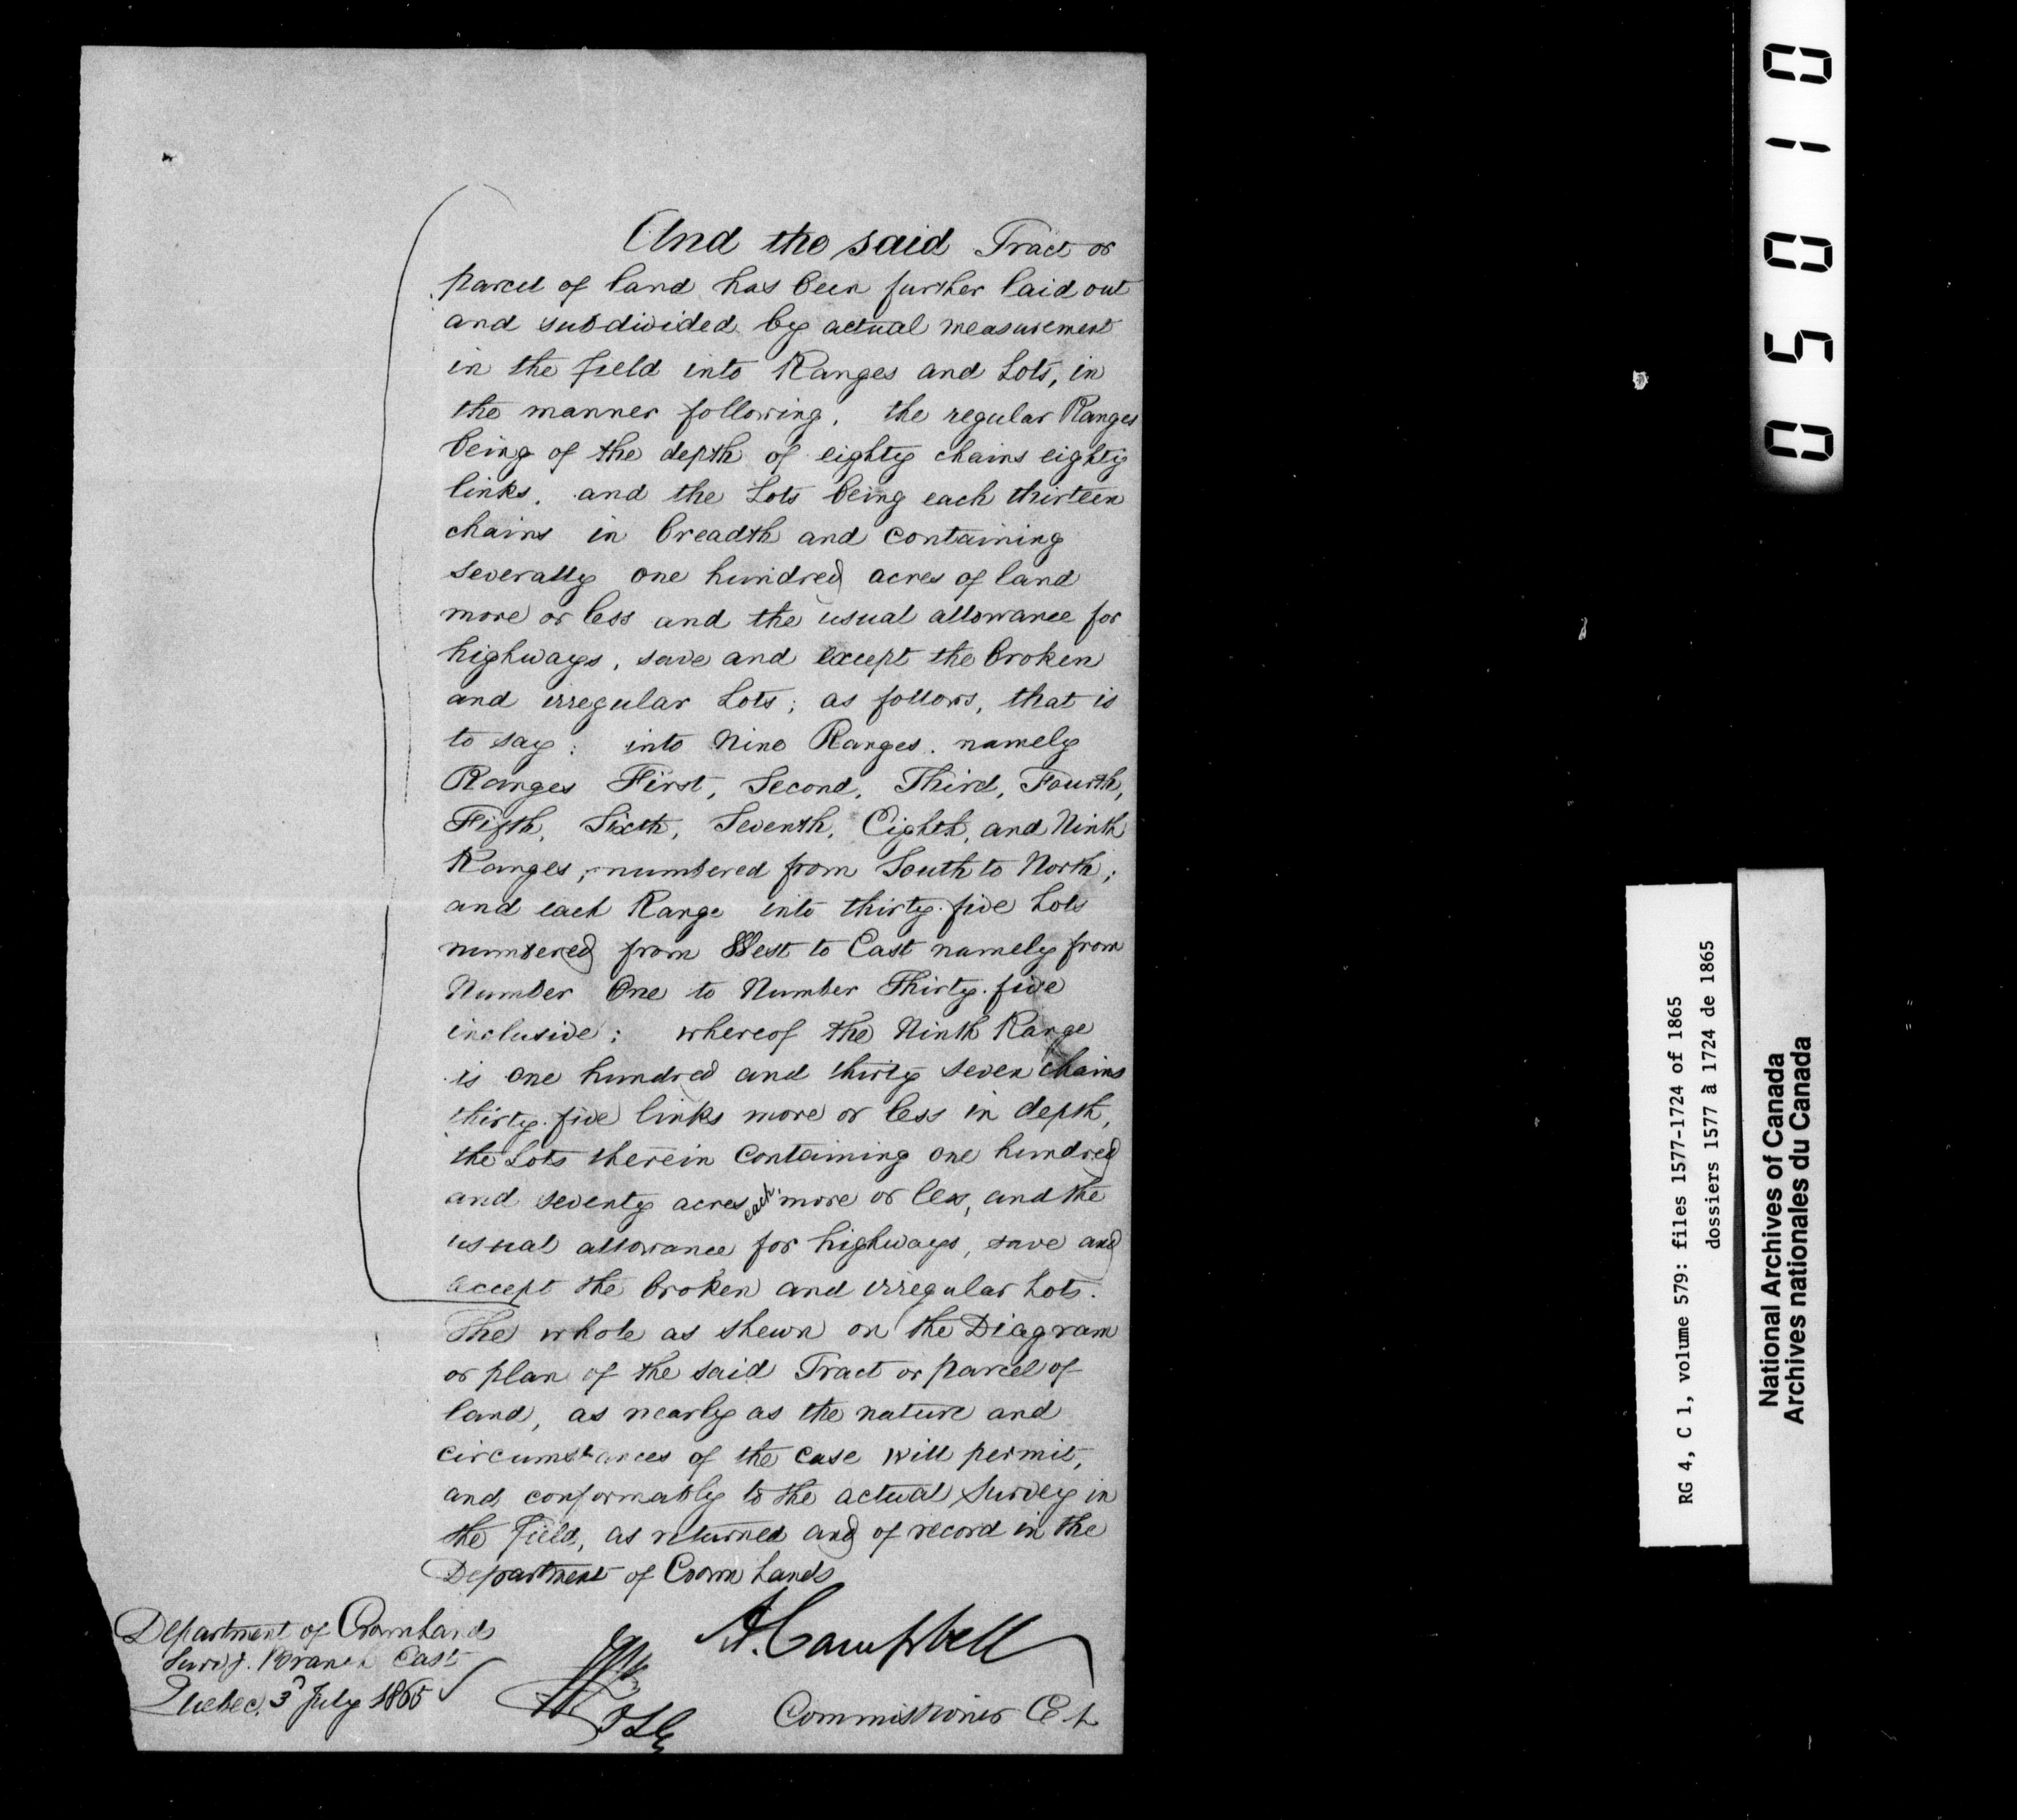 And the said Tract or
parcel of land has been further laid out
and subdivided by actual measurement
in the field into Ranges and Lots, in
the manner following, the regular Ranges
being of the depth of eighty chains eighty
links, and the Lots being each thirteen
chains in breadth and containing
severally one hundred acres of land
more or less and the usual allowance for
highways, save and except the broken
and irregular Lots; as follows, that is
to say: into Nine Ranges, namely
Ranges First, Second, Third, Fourth,
Fifth, Sixth, Seventh, Eighth, and Ninth
Ranges, numbered from South to North;
and each Range into thirty-five Lots
numbered from West to East namely from
Number One to Number Thirty-five
inclusive; whereof the Ninth Range
is one hundred and thirty seven chains
thirty-five links more or less in depth,
the Lots therein containing one hundred
and seventy acres each more or less, and the
usual allowance for highways, save and
except the broken and irregular Lots.
The whole as shewn on the Diagram
or plan of the said Tract or parcel of
land, as nearly as the nature and
circumstances of the case will permit,
and conformably to the actual Survey in
the Field, as returned and of record in the
Department of Crown Lands
A. Campbell
Commissioner C. L
Department of Crown Lands
Surv.g. Branch East
Quebec, 3d July 1865
05010
RG 4, C 1, volume 579: files 1577-1724 of 1865
dossiers 1577 à 1724 de 1865
National Archives of Canada
Archives nationales du Canada